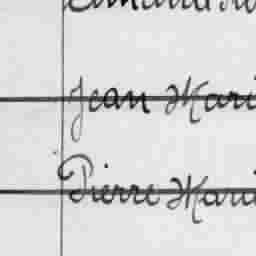 Jean Mari
Pierre Mari